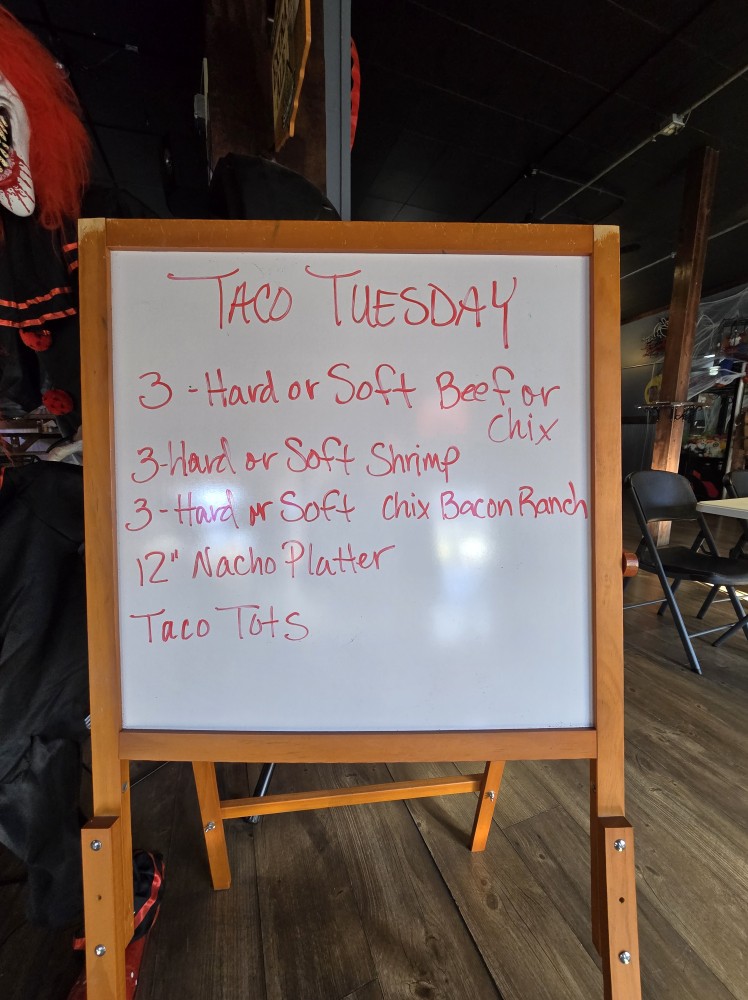 TACO TUESDAY
3 - Hard or Soft Beef or
Chix
3-Hard or Soft Shrimp
3 - Hard or Soft Chix Bacon Ranch
12" Nacho Platter
Taco Tots